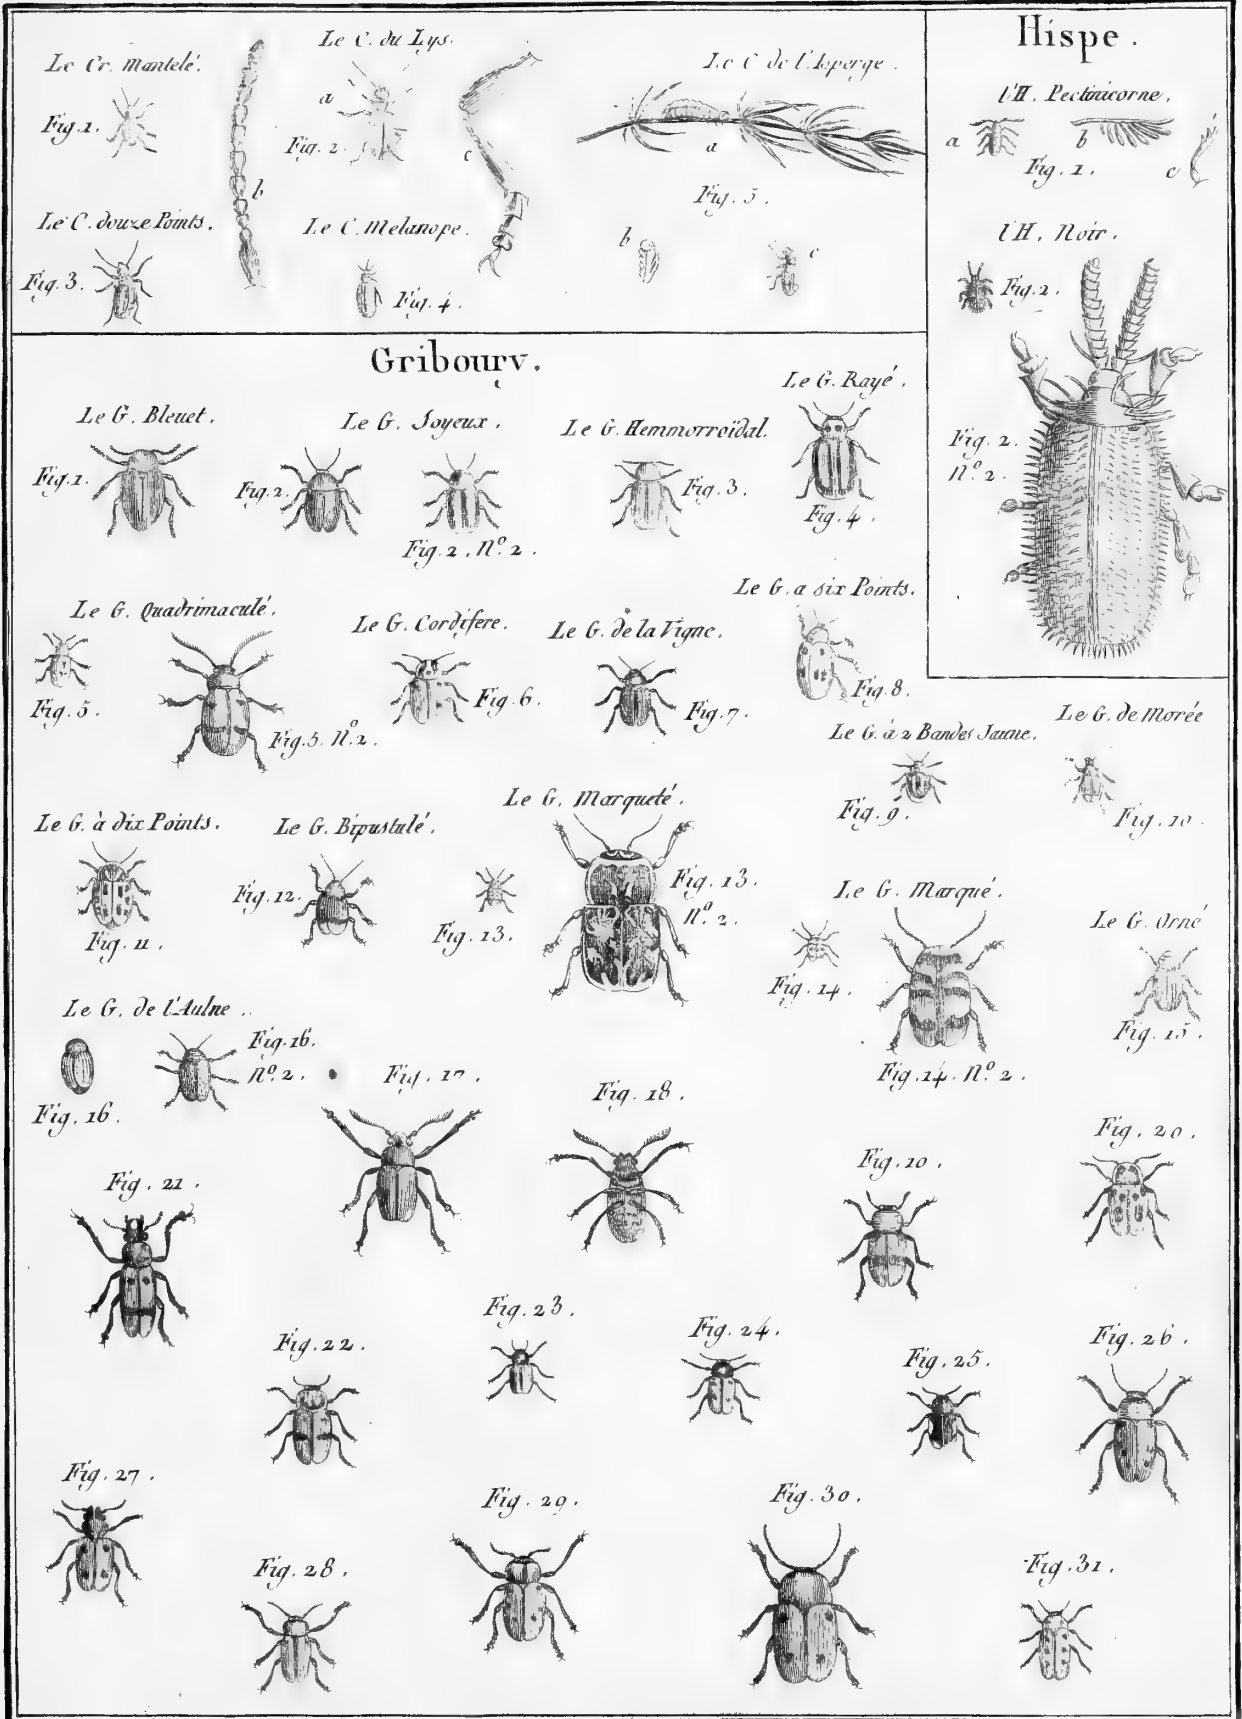 Le Cr. Mantelé.
Fig. 1.
b
Le C. du Lys.
a
Fig. 2.
c
Le C de l'Asperge.
a
Fig. 5.
b
c
Le C. douze Points.
Fig. 3.
Le C. Melanope.
Fig. 4.
Hispe.
l'H. Pectinicorne.
a
b
c
Fig. 1.
l'H. Noir.
Fig. 2.
Fig. 2.
N.o 2.
Gribourv.
Le G. Bleuet.
Fig. 1.
Le G. Soyeux.
Fig. 2.
Fig. 2. N.o 2.
Le G. Hemmorroïdal.
Fig. 3.
Le G. Rayé.
Fig. 4.
Le G. Quadrimaculé.
Fig. 5.
Fig. 5. N.o 2.
Le G. Cordifere.
Fig. 6.
Le G. de la Vigne.
Fig. 7.
Le G. a six Points.
Fig. 8.
Le G. à 2 Bandes Jaune.
Fig. 9.
Le G. de Morée
Fig. 10.
Le G. à dix Points.
Fig. 11.
Le G. Bipustulé.
Fig. 12.
Le G. Marqueté.
Fig. 13.
Fig. 13.
N.o 2.
Le G. Marqué.
Fig. 14.
Fig. 14. N.o 2.
Le G. Orné
Fig. 15.
Le G. de l'Aulne..
Fig. 16.
Fig. 16.
N.o 2.
Fig. 17.
Fig. 18.
Fig. 10.
Fig. 20.
Fig. 21.
Fig. 22.
Fig. 23.
Fig. 24.
Fig. 25.
Fig. 26.
Fig. 27.
Fig. 28.
Fig. 29.
Fig. 30.
Fig. 31.